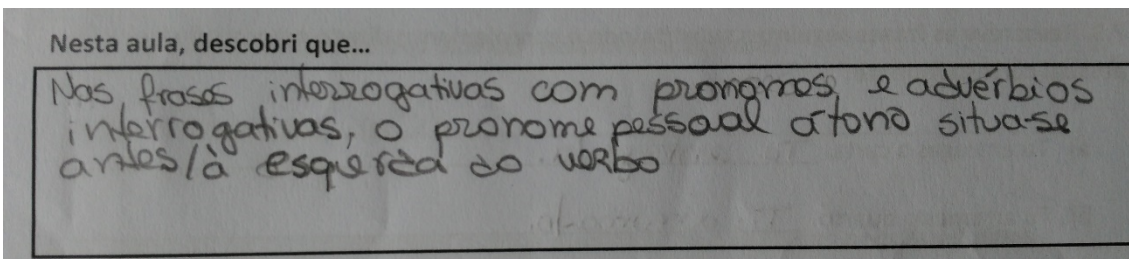 Nesta aula, descobri que...
Nas frases interrogativas com pronomes e advérbios
interrogativas, o pronome pessoal átono situa-se
antes/à esquerda do verbo